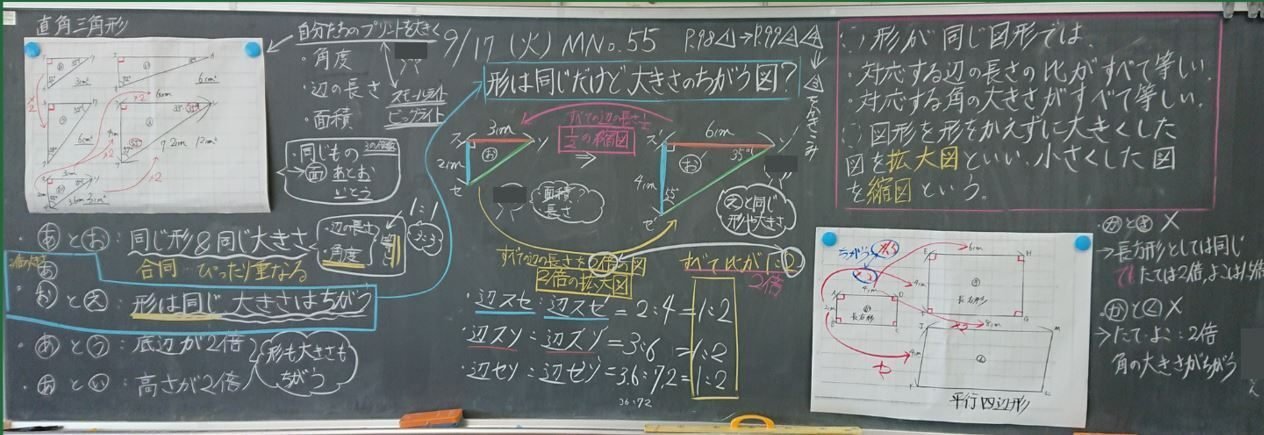 直角三角形
自分たちのプリントを大きく
・角度
・辺の長さ
・面積
スモールライト
ビッグライト
・同じもの
9/17 (火) MNo.55
P.98 → P.99
形は同じだけど大きさのちがう図?
3cm
2cm
すべての辺の長さ1/2
1/2の縮図
⇒
6cm
4cm
35°
55°
面積?
長さ
えと同じ
形や大きさ
すべての辺の長さを2倍の図
2倍の拡大図
すべて比が1:2
2倍
・辺スセ:辺ズゼ=2:4=1:2
・辺スソ:辺ズゾ=3:6=1:2
・辺セソ:辺ゼゾ=3.6:7.2=1:2
36:72
・あとお:同じ形&同じ大きさ
合同 ぴったり重なる
・辺の長さ
・角度
1:1
あ
おとえ:形は同じ 大きさはちがう
・あとう:底辺が2倍
・あとい:高さが2倍
形も大きさも
ちがう
○形が同じ図形では、
・対応する辺の長さの比がすべて等しい。
・対応する角の大きさがすべて等しい。
○図形を形をかえずに大きくした
図を拡大図といい、小さくした図
を縮図という。
ちがう
6cm
4cm
長方形
8cm
4cm
平行四辺形
×
→長方形としては同じ
でもたては2倍、よこは1.5倍
×
→たて・よこ:2倍
角の大きさがちがう